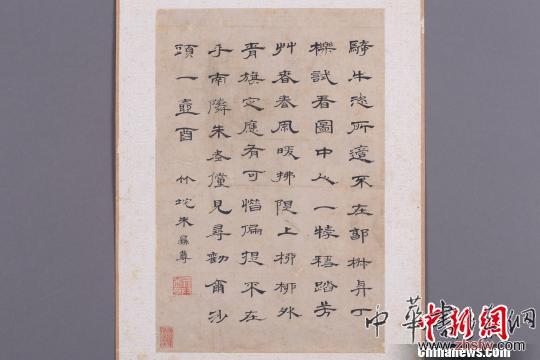 騎牛恣所適不在
櫟試看圖中人一犢穩踏芳
艸春春風暖拂隄上柳柳外
青旗定應有可惜偏提不在
手南隣朱老儻見尋勸爾沙
頭一壺酉
竹垞朱彝尊
中華
网
中新網
www.chinanews.com
www.zhsfw.com